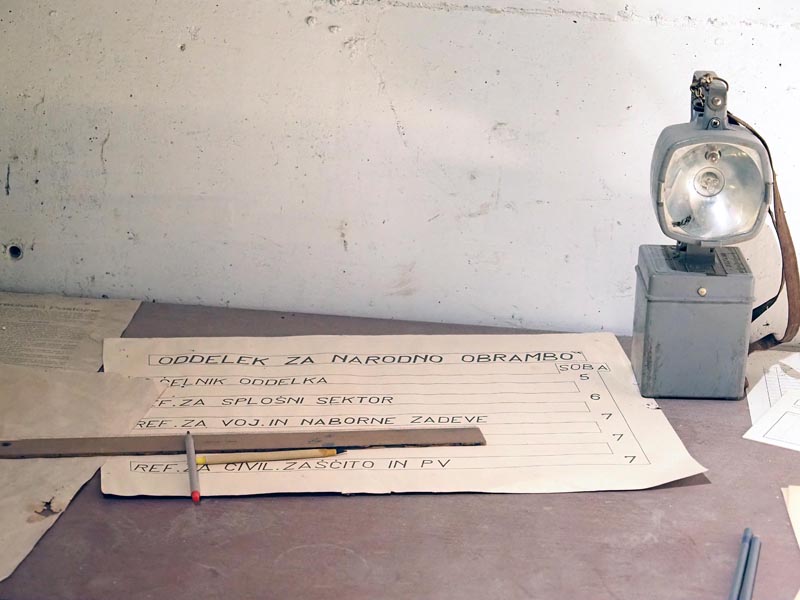 ODDELEK ZA NARODNO OBRAMBO
SOBA
ČELNIK ODDELKA 5
REF.ZA SPLOŠNI SEKTOR 6
REF.ZA VOJ.IN NABORNE ZADEVE 7
7
REF.ZA CIVIL.ZAŠČITO IN PV 7